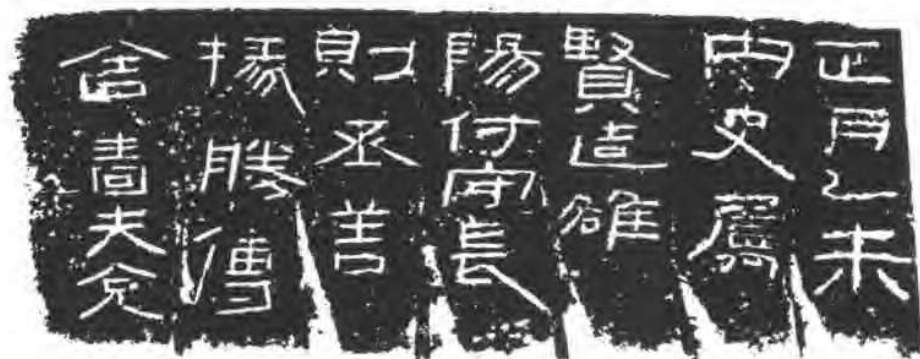 正月乙未
内史屬
賢造雒
陽付守長
則丞善
掾勝傳
舍嗇夫兌